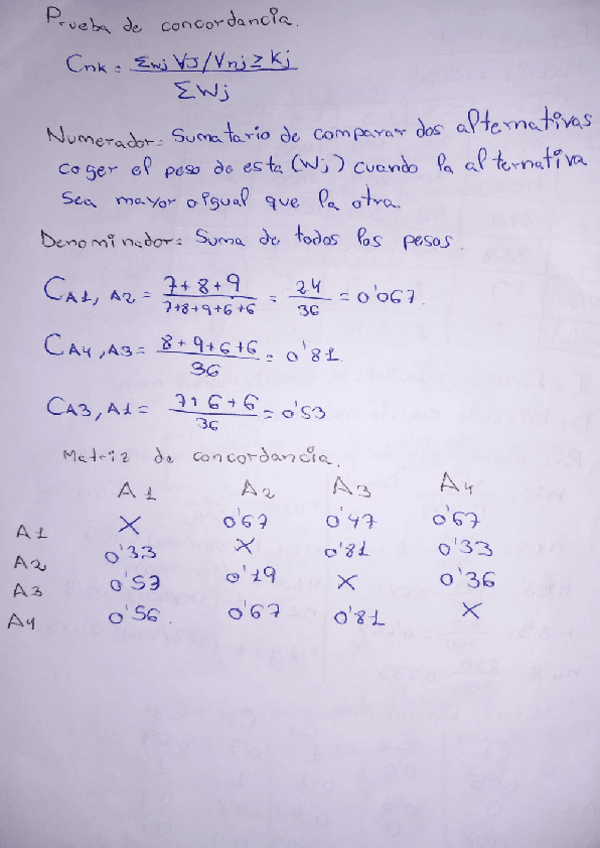 Prueba de concordancia.
Cnk = Σwj ∀j/Vnj ≥ Kj / ΣWj
Numerador = Sumatario de comparar dos alternativas
coger el peso de esta (Wj) cuando la alternativa
sea mayor o igual que la otra.
Denominador = Suma de todos los pesos.
CA1, A2 = 7+8+9 / 7+8+9+6+6 = 24 / 36 = 0'067.
CA4, A3 = 8+9+6+6 / 36 = 0'81.
CA3, A1 = 7+6+6 / 36 = 0'53
Matriz de concordancia.
A1 A2 A3 A4
A1 X 0'67 0'47 0'67
A2 0'33 X 0'81 0'33
A3 0'53 0'19 X 0'36
A4 0'56. 0'67 0'81 X